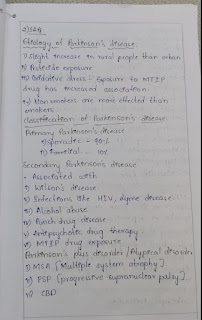 2) SAQ
Etiology of Parkinson's disease:
i) Slight increase in rural people than urban
ii) Pesticide exposure
iii) Oxidative stress - Exposure to MTIP
drug has increased association
iv) Non smokers are more effected than
smokers
Classification of Parkinson's disease:
Primary Parkinson's disease
i) Sporadic - 90%
ii) Familial - 10%
Secondary Parkinson's disease
- Associated with
i) Wilson's disease
ii) Infections like HIV, lyme disease
iii) Alcohol abuse
iv) Punch drug disease
v) Antipsychotic drug therapy
vi) MTIP drug exposure
Parkinson's plus disorder / Atypical disorder
i) MSA [Multiple system atrophy]
ii) PSP [progressive supranuclear palsy]
iii) CBD